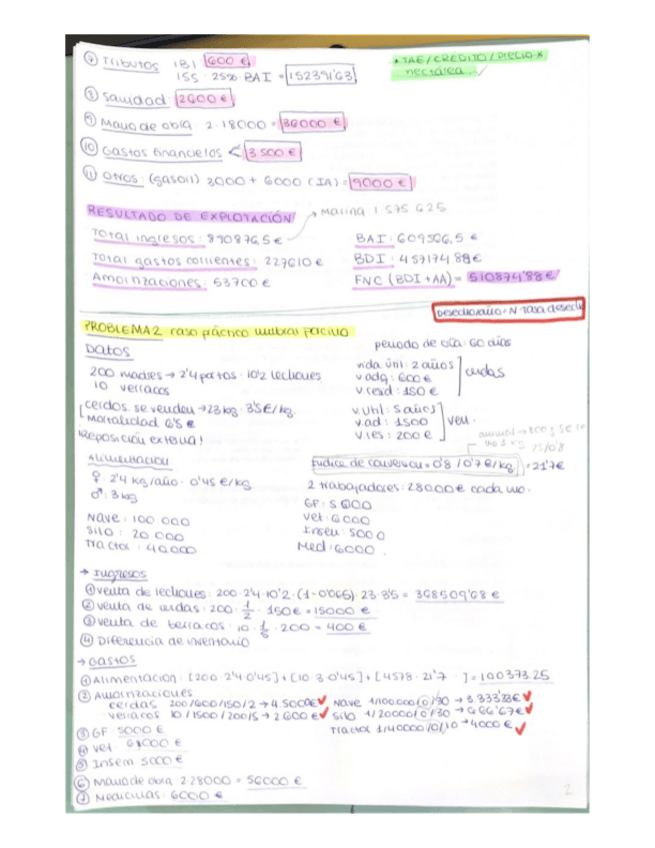 ⑦ Tributos IBI: 600 €
ISS: 25% BAI = 152391'63
* TAE / CREDITO / PRECIO *
hectárea
⑧ Sanidad: 2600 €
⑨ Mano de obra 2·18000 = 36000 €
⑩ Gastos financieros < 3500 €
⑪ Otros: (gasoil) 3000 + 6000 (IA) = 9000 €
RESULTADO DE EXPLOTACIÓN
→ Marina 1575625
Total ingresos: 890876,5 €
Total gastos corrientes: 227610 €
Amortizaciones: 53700 €
BAI: 609566,5 €
BDI: 457174'88 €
FNC (BDI + AA) = 510874'88 €
Desecho/año = N · tasa desecho
PROBLEMA 2 caso práctico umbral porcino
DATOS
periodo de cría: 60 días
200 madres → 2'4 partos · 10'2 lechones
10 verracos
[cerdos se venden → 23 kg 3'5 €/kg.
Mortalidad 6'5
¡Reposición externa!
vida útil: 2 años
v adq: 600 €
v. resid: 150 €
cerdas
v. util: 5 años
v. ad: 1500
v. res: 200 €
verr.
Alimentación
♀: 2'4 kg/año · 0'45 €/kg
♂: 3 kg
Índice de conversión = 0'8 / 0'7 €/kg = 21'7 €
2 trabajadores: 28000 € cada uno.
Nave: 100.000
Silo: 20 000
Tractor: 40000
GF: 5000
Vet: 6000
Insem: 5000
Med: 6000
→ Ingresos
① Venta de lechones: 200·2'4·10'2·(1-0'065)·23·3'5 = 368509'68 €
② Venta de cerdas: 200·1/2·150€ = 15000 €
③ Venta de berracos: 10·1/5·200 = 400 €
④ Diferencia de inventario
→ Gastos
① Alimentación: [200·2'4·0'45] + [10·3·0'45] + [4578·21'7 · ] = 100373.25
② Amortizaciones
cerdas 200/600/150/2 → 4.5000€ ✓
verracos 10/1500/200/5 → 2600 € ✓
Nave 1/100.000/0/30 → 3.333'33€ ✓
Silo 1/20000/0/30 → 666'67€ ✓
Tractor 1/40000/0/10 → 4000 € ✓
③ GF 5000 €
④ Vet 6000 €
⑤ Insem 5000 €
⑥ Mano de obra 2·28000 = 56000 €
⑦ Medicinas: 6000 €
2